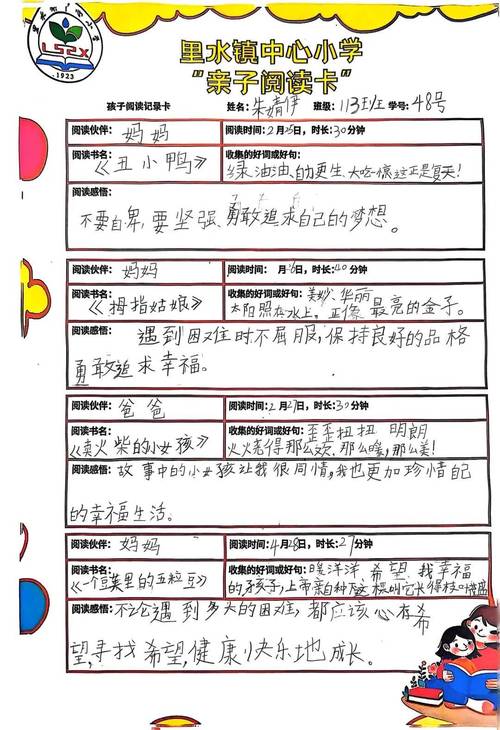 里水镇中心小学
LSZX
1923
里水镇中心小学
“亲子阅读卡”
孩子阅读记录卡 姓名:朱婧伊 班级:113班 学号:48号
阅读伙伴:妈妈 阅读时间:2月25日,时长:30分钟
阅读书名: 收集的好词或好句:
《丑小鸭》 绿油油、自更生、大吃一惊这正是夏天!
阅读感悟:
不要自卑,要坚强、勇敢追求自己的梦想。
阅读伙伴:妈妈 阅读时间: 月26日,时长:40分钟
阅读书名: 收集的好词或好句:美妙、华丽
《拇指姑娘》 太阳照在水上,正像最亮的金子。
阅读感悟: 遇到困难时不屈服,保持良好的品格
勇敢追求幸福。
阅读伙伴:爸爸 阅读时间:2月27日,时长:30分钟
阅读书名: 收集的好词或好句:歪歪扭扭 明朗
《卖火柴的小女孩》 火火烧得那么欢、那么暖,那么美!
阅读感悟:故事中的小女孩让我很同情,我也更加珍惜自己
的幸福生活。
阅读伙伴:妈妈 阅读时间:4月28日,时长:27分钟
阅读书名: 收集的好词或好句:暖洋洋 希望 我幸福
《一个豆荚里的五粒豆》 的孩子,上帝亲自种下这棵叫它长得枝叶茂盛
阅读感悟:不论遇到多大的困难,都应该心有希
望,寻找希望,健康快乐地成长。